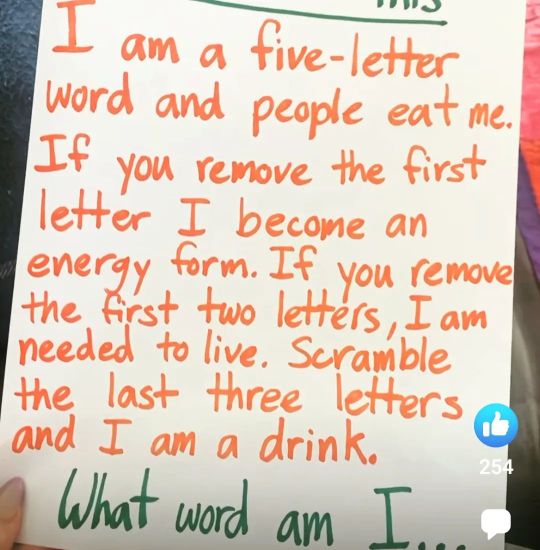 This
I am a five-letter
word and people eat me.
If you remove the first
letter I become an
energy form. If you remove
the first two letters, I am
needed to live. Scramble
the last three letters
and I am a drink.
What word am I...
254